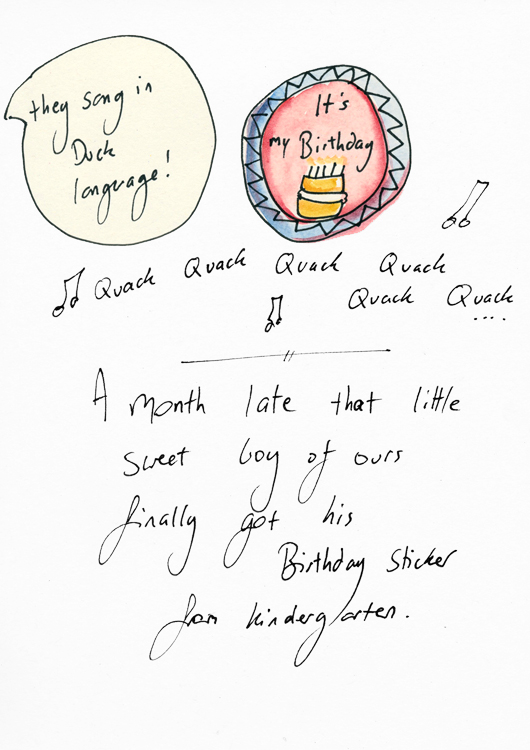 they song in
Duck
language!
It's
my Birthday
Quack Quack Quack Quack
Quack Quack
....
A month late that little
sweet boy of ours
finally got his
Birthday Sticker
from kindergarten.